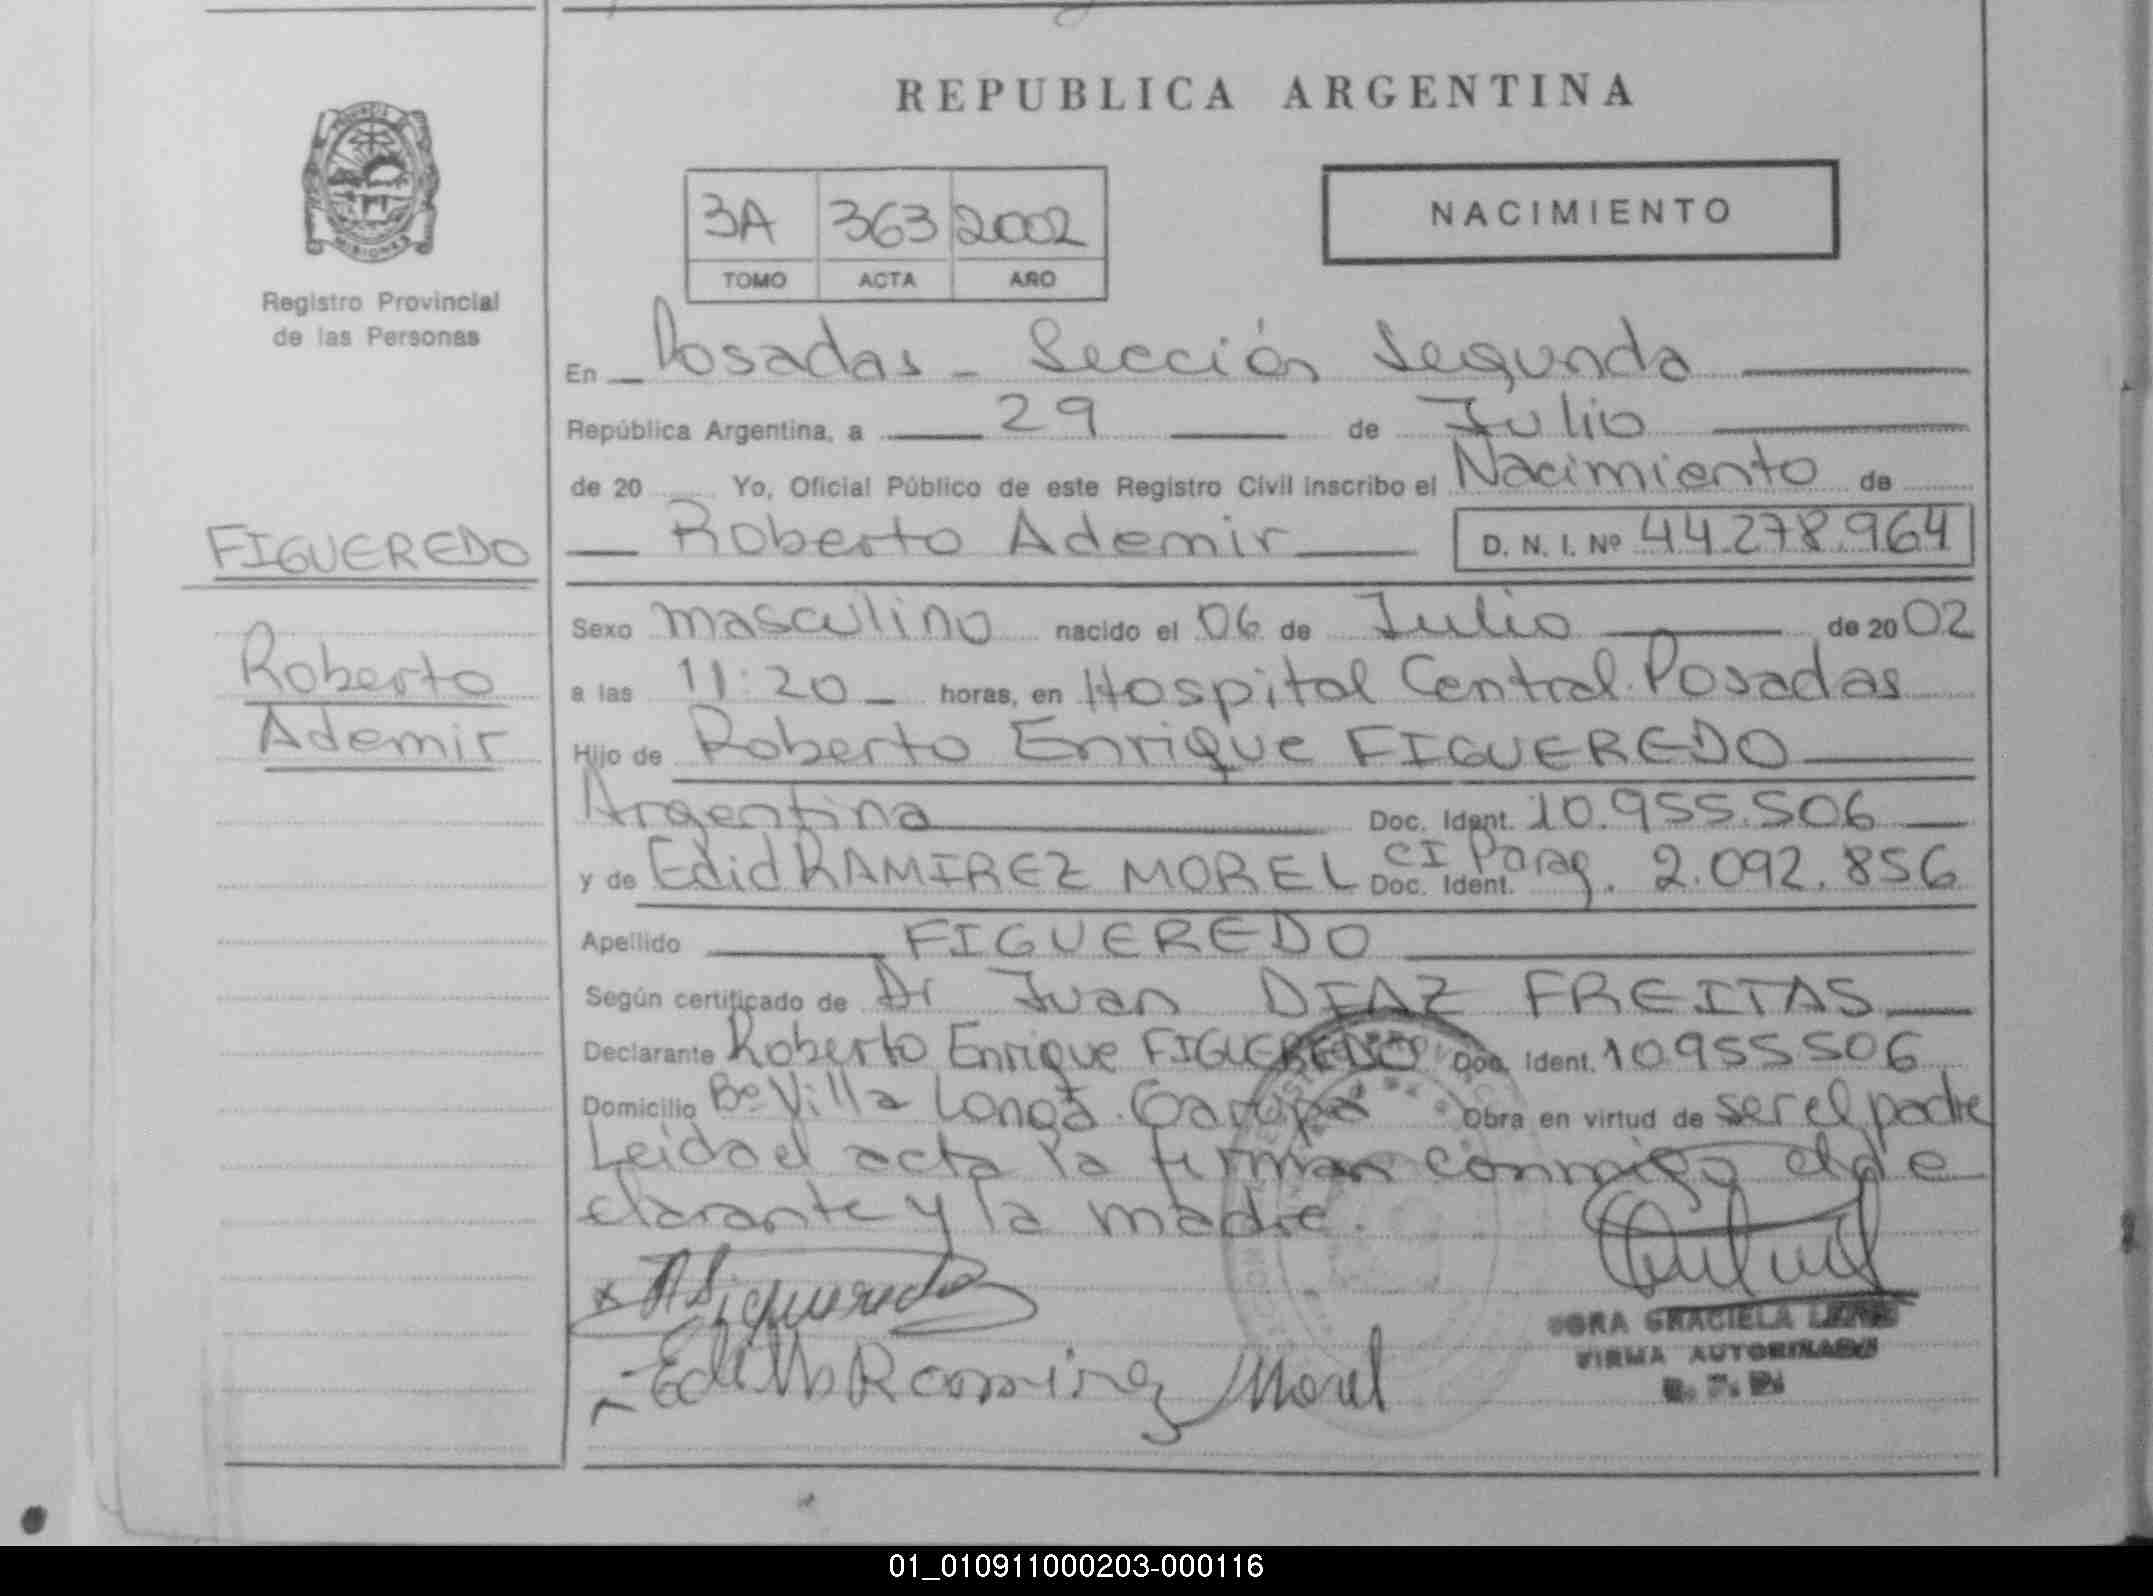 REPUBLICA ARGENTINA
PROVINCIA
MISIONES
Registro Provincial
de las Personas
3A 363 2002
TOMO ACTA AÑO
NACIMIENTO
En Posadas - Sección Segunda
República Argentina, a 29 de Julio
de 20 Yo, Oficial Público de este Registro Civil inscribo el Nacimiento de
Roberto Ademir D. N. I. Nº 44.278.964
FIGUEREDO
Roberto
Ademir
Sexo masculino nacido el 06 de Julio de 20 02
a las 11:20 horas, en Hospital Central Posadas
Hijo de Roberto Enrique FIGUEREDO
Argentina Doc. Ident. 10.955.506
y de Edid RAMIREZ MOREL Doc. Ident. CI Parag. 2.092.856
Apellido FIGUEREDO
Según certificado de Dr Juan DIAZ FREITAS
Declarante Roberto Enrique FIGUEREDO Doc. Ident. 10955506
Domicilio Bº Villa Longa. Garupá Obra en virtud de ser el padre
Leida el acta la firman conmigo el de
clarante y la madre.
Figueredo
Edith Ramirez Morel
GRACIELA
FIRMA AUTORIZADA
01_010911000203-000116